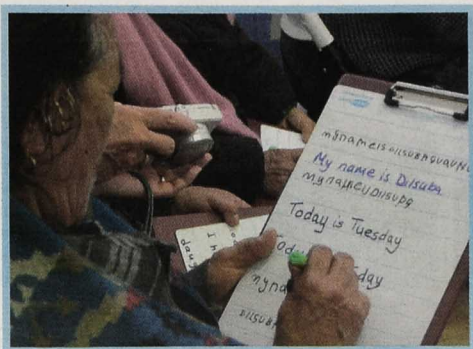 mynameisDilsuba
My name is Dilsuba
mynameiDilsuba
Today is Tuesday
Today day
myna
Dilsuba